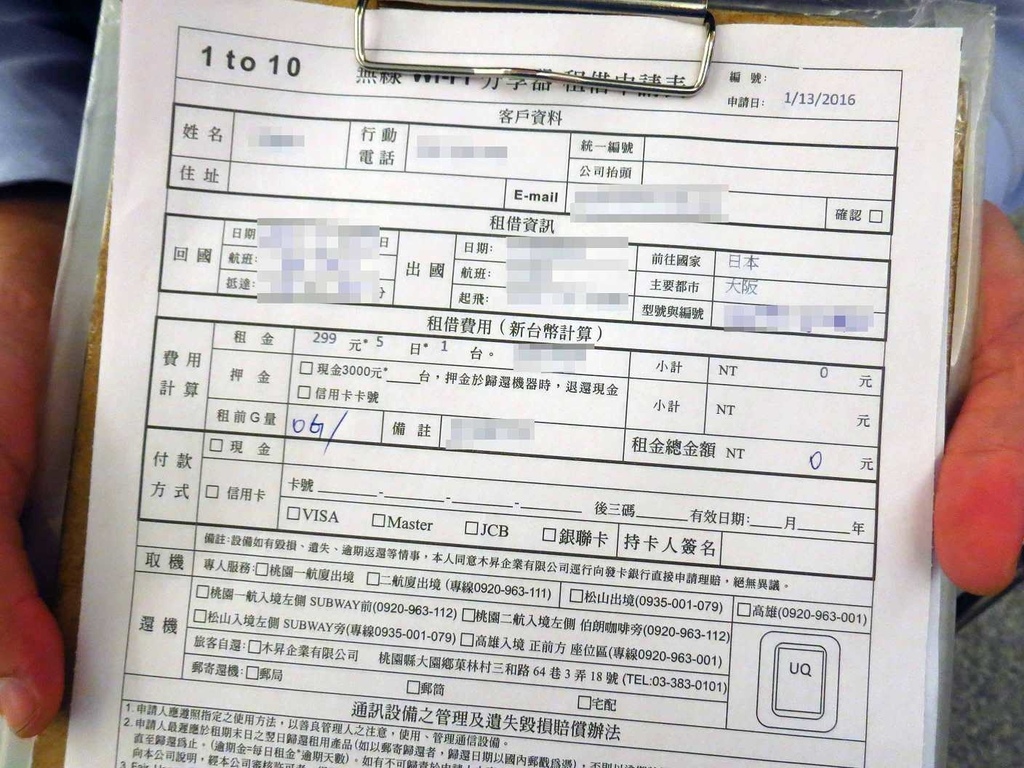 1 to 10
無線 WI-FI 分享器 租借申請表
編 號：
申請日： 1/13/2016
客戶資料
姓 名 行 動 電 話 統一編號
公司抬頭
住 址 E-mail 確認 □
租借資訊
回 國 日期 日 出 國 日期： 前往國家 日本
航班： 航班： 主要都市 大阪
抵達： 分 起飛： 型號與編號
租借費用（新台幣計算）
費 用 計 算 租 金 299 元* 5 日* 1 台。 小計 NT 0 元
押 金 □現金3000元*____台，押金於歸還機器時，退還現金
□信用卡卡號 小計 NT 元
租前G量 0G/ 備 註 租金總金額 NT 0 元
付 款 方 式 □ 現 金
□ 信用卡 卡號________-________-________-________ 後三碼______有效日期：____月____年
□VISA □Master □JCB □銀聯卡 持卡人簽名
備註：設備如有毀損、遺失、逾期返還等情事，本人同意木昇企業有限公司逕行向發卡銀行直接申請理賠，絕無異議。
取 機 專人服務：□桃園一航廈出境 □二航廈出境（專線0920-963-111） □松山出境(0935-001-079) □高雄(0920-963-001)
還 機 □桃園一航入境左側 SUBWAY前(0920-963-112) □桃園二航入境左側 伯朗咖啡旁(0920-963-112)
□松山入境左側 SUBWAY旁(專線0935-001-079) □高雄入境 正前方 座位區(專線0920-963-001)
旅客自還：□木昇企業有限公司 桃園縣大園鄉菓林村三和路 64 巷 3 弄 18 號 (TEL:03-383-0101)
郵寄還機：□郵局 □郵筒 □宅配
UQ
通訊設備之管理及遺失毀損賠償辦法
1. 申請人應遵照指定之使用方法，以善良管理人之注意，使用、管理通信設備。
2. 申請人最遲應於租期末日之翌日歸還租用產品(如以郵寄歸還者，歸還日期以國內郵戳為憑)，
直至歸還為止。(逾期金=每日租金*逾期天數)。
向本公司說明，經本公司
3. Fair